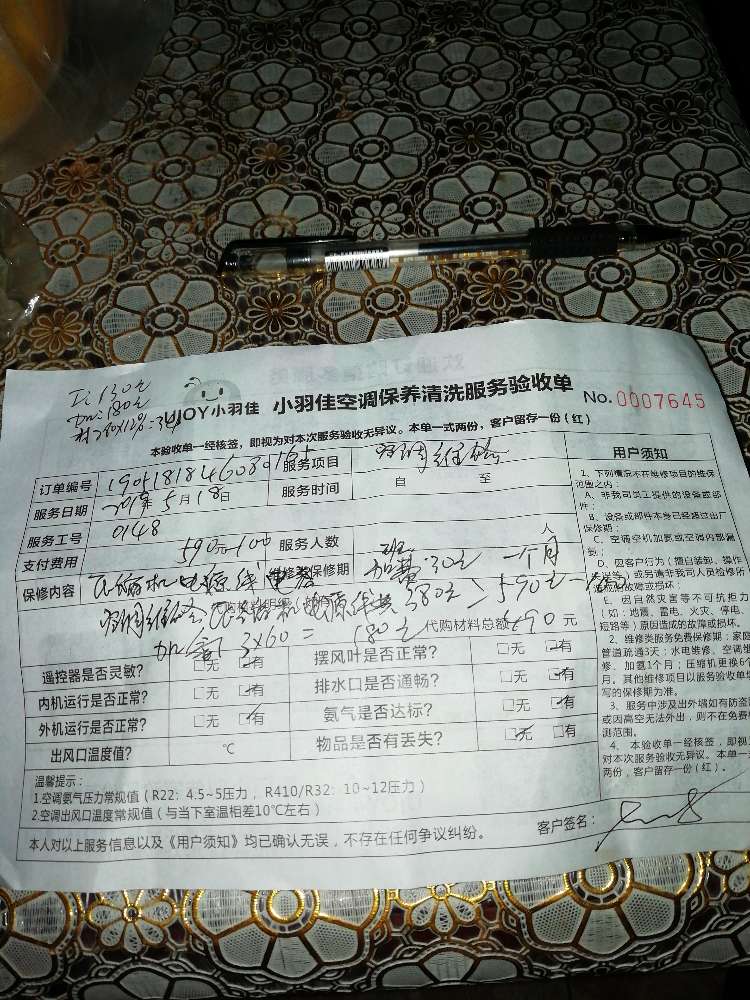 130元
180元
UJOY小羽佳 小羽佳空调保养清洗服务验收单 No. 0007645
本验收单一经核签,即视为对本次服务验收无异议。本单一式两份,客户留存一份(红)
订单编号 服务项目 空调维修
服务日期 2019年5月18日 服务时间 自 至
服务工号 0148
支付费用 590元 服务人数 人
保修内容 压缩机电源线 维修 保修期 一个月
空调维修 压缩机电源线 380元 590元
加氟 3×60=180元 代购材料总额 元
遥控器是否灵敏? 无 有 摆风叶是否正常? 无 有
内机运行是否正常? 无 有 排水口是否通畅? 无 有
外机运行是否正常? 无 有 氨气是否达标? 无 有
出风口温度值? ℃ 物品是否有丢失? 无 有
温馨提示:
1.空调氨气压力常规值(R22:4.5~5压力,R410/R32:10~12压力)
2.空调出风口温度常规值(与当下室温相差10℃左右)
本人对以上服务信息以及《用户须知》均已确认无误,不存在任何争议纠纷。 客户签名:
用户须知
1、下列情况不在维修项目的维保
范围之内:
A、非我司员工提供的设备或部
件;
B、设备或部件本身已经超过出厂
保修期;
C、空调空机加氨或空调内部漏
D、因客户行为(擅自装卸、操作
或另请非我司人员检修所
故障或损坏;
E、因自然灾害等不可抗拒力
(如:地震、雷电、火灾、停电、
短路等)原因造成的故障或损坏。
2、维修类服务免费保修期:家庭
管道疏通3天;水电维修、空调维
修、加氨1个月;压缩机更换6个
月。其他维修项目以服务验收单填
写的保修期为准。
3、服务中涉及出外墙如有防盗
或因高空无法外出,则不在免费
测范围。
4、本验收单一经核签,即视
对本次服务验收无异议。本单一式
两份,客户留存一份(红)。